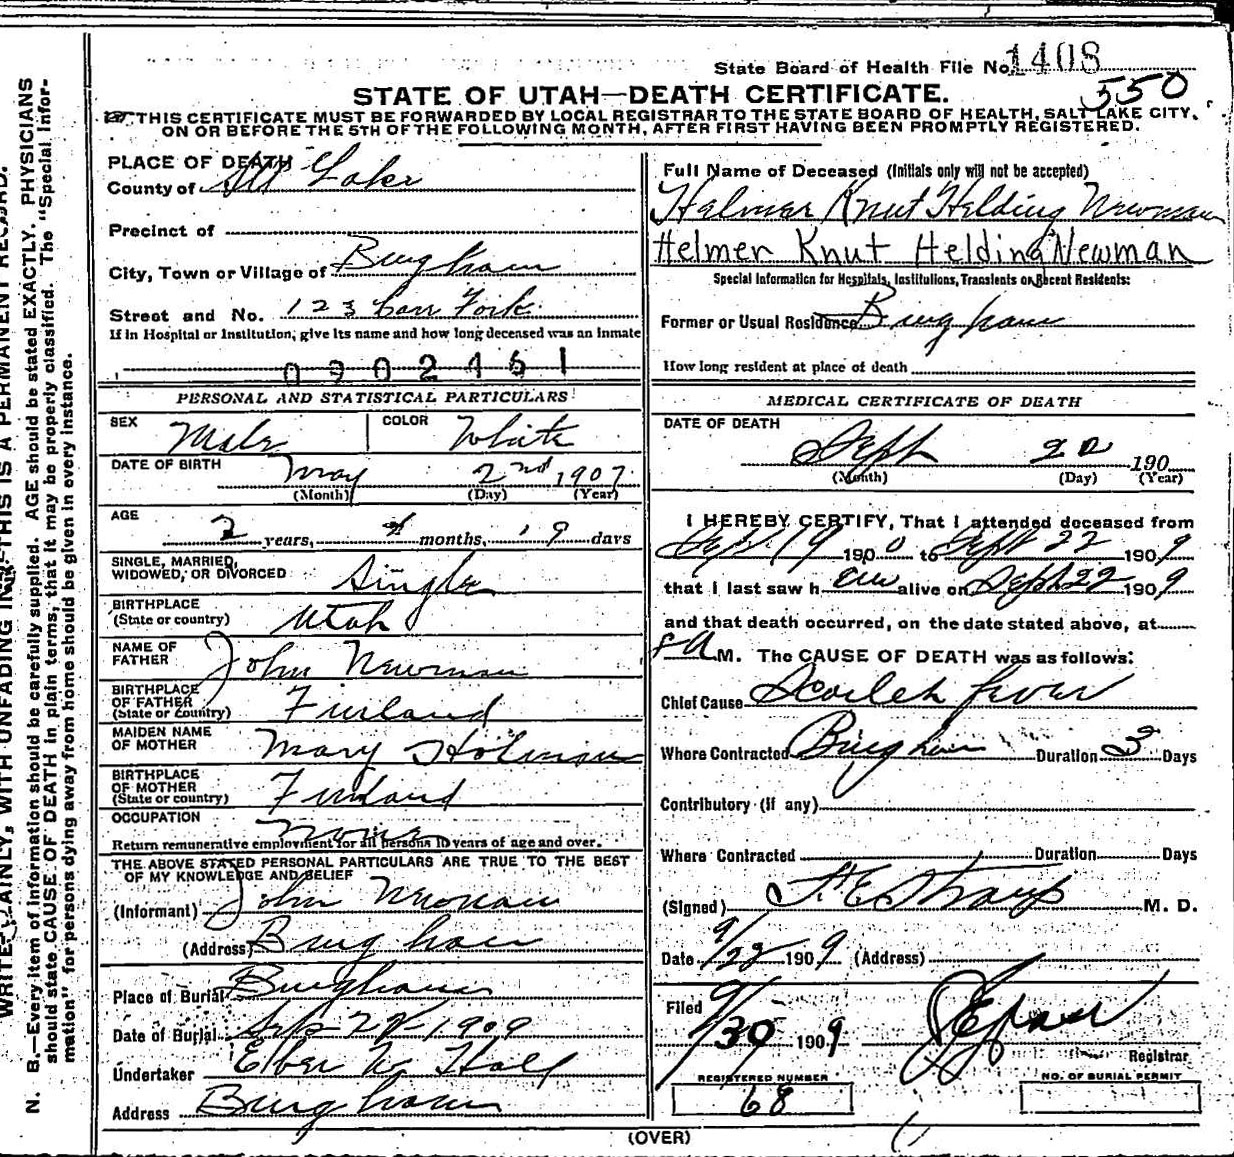 State Board of Health File No. 1408
550
STATE OF UTAH—DEATH CERTIFICATE.
THIS CERTIFICATE MUST BE FORWARDED BY LOCAL REGISTRAR TO THE STATE BOARD OF HEALTH, SALT LAKE CITY,
ON OR BEFORE THE 5TH OF THE FOLLOWING MONTH, AFTER FIRST HAVING BEEN PROMPTLY REGISTERED.
PLACE OF DEATH
County of Lake
Precinct of
City, Town or Village of Bingham
Street and No. 123 Carr Fork
If in Hospital or Institution, give its name and how long deceased was an inmate
0902461
PERSONAL AND STATISTICAL PARTICULARS
SEX Male COLOR White
DATE OF BIRTH May 2nd 1907
(Month) (Day) (Year)
AGE
2 years, 4 months, 19 days
SINGLE, MARRIED,
WIDOWED, OR DIVORCED Single
BIRTHPLACE
(State or country) Utah
NAME OF
FATHER John Newman
BIRTHPLACE
OF FATHER
(State or Country) Finland
MAIDEN NAME
OF MOTHER Mary Holman
BIRTHPLACE
OF MOTHER
(State or country) Finland
OCCUPATION None
Return remunerative employment for all persons 10 years of age and over.
THE ABOVE STATED PERSONAL PARTICULARS ARE TRUE TO THE BEST
OF MY KNOWLEDGE AND BELIEF
(Informant) John Newman
(Address) Bingham
Place of Burial Bingham
Date of Burial 1909
Undertaker Hall
Address Bingham
Full Name of Deceased (Initials only will not be accepted)
Helmer Knut Helding Newman
Helmer Knut Helding Newman
Special Information for Hospitals, Institutions, Transients or Recent Residents:
Former or Usual Residence Bingham
How long resident at place of death
MEDICAL CERTIFICATE OF DEATH
DATE OF DEATH
Sept 22 190
(Month) (Day) (Year)
I HEREBY CERTIFY, That I attended deceased from
Sept. 19 190 to Sept 22 1909
that I last saw h alive on Sept 22 1909
and that death occurred, on the date stated above, at
M. The CAUSE OF DEATH was as follows:
Chief Cause Scarlet fever
Where Contracted Bingham Duration 3 Days
Contributory (if any)
Where Contracted Duration Days
(Signed) M. D.
Date 9/22 1909 (Address)
Filed
9/30 1909
Registrar
REGISTERED NUMBER
68
NO. OF BURIAL PERMIT
(OVER)
N. B.—Every item of information should be carefully supplied. AGE should be stated EXACTLY. PHYSICIANS
should state CAUSE OF DEATH in plain terms, that it may be properly classified. The "Special Infor-
mation" for persons dying away from home should be given in every instance.
WITH UNFADING INK—THIS IS A PERMANENT RECORD.